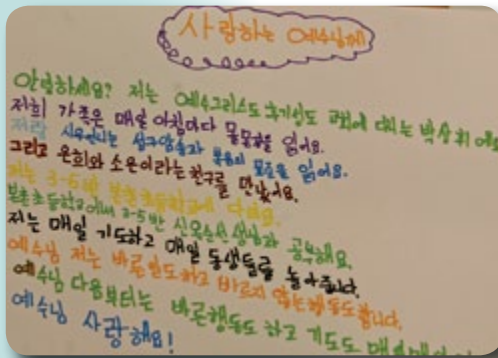 사랑하는 예수님께
안녕하세요? 저는 예수그리스도 후기성도 교회에 다니는 박상휘에요
저희 가족은 매일 아침마다 몰몬경을 읽어요.
저랑 시우언니는 성구암송과 몰몬의 모음을 읽어요.
그리고 은희와 소윤이라는 친구를 만났어요.
저는 3-5반 본촌초등학교에 다녀요.
본촌초등학교에서 3-5반 신옥순선생님과 공부해요.
저는 매일 기도하고 매일 동생들를 놀아줍니다.
예수님 저는 바른일도하고 바르지 않는행동도합니다.
예수님 다음부터는 바른행동도 하고 기도도 매일매일
예수님 사랑해요!